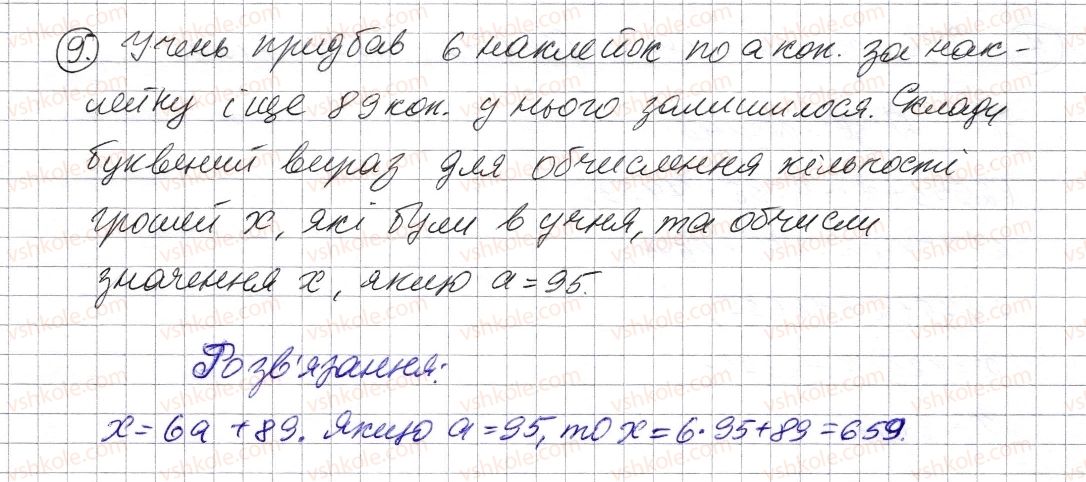 9. Учень придбав 6 наклейок по a коп. за нак-
лейку і ще 89 коп. у нього залишилося. Склади
буквений вираз для обчислення кількості
грошей x, які були в учня, та обчисли
значення x, якщо a = 95.
Розв'язання:
x = 6a + 89. Якщо a = 95, то x = 6 · 95 + 89 = 659.